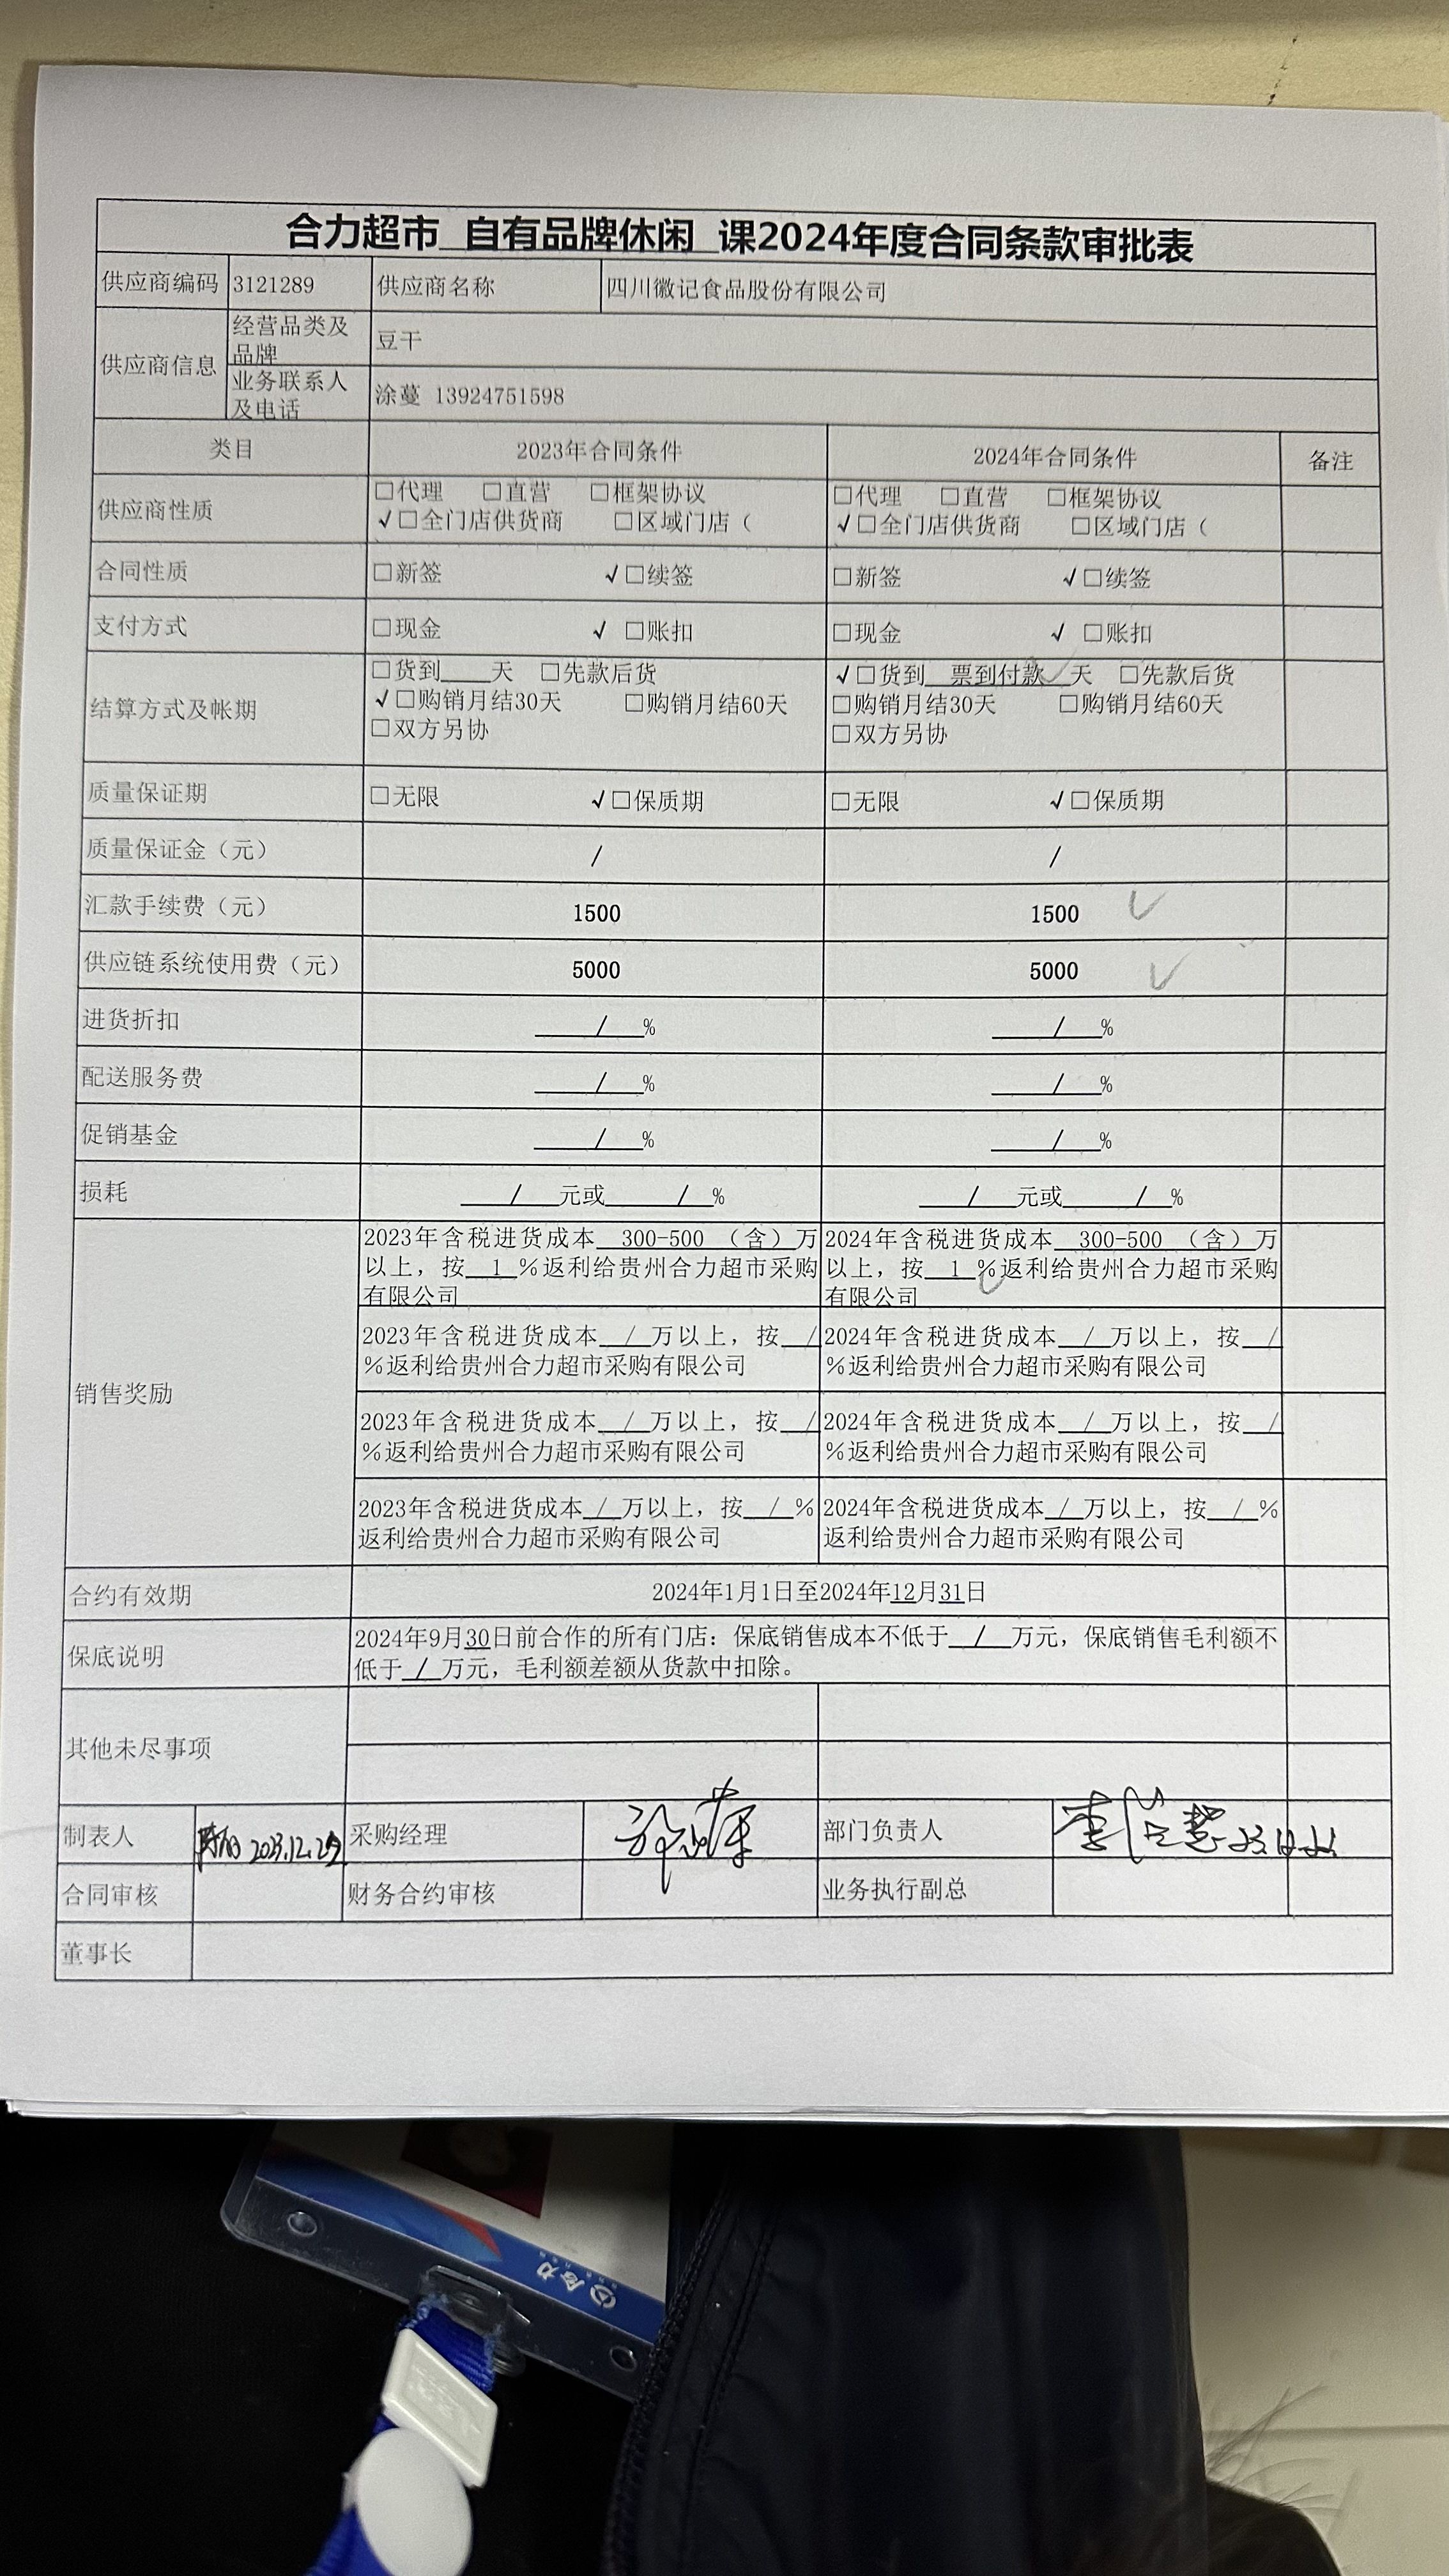 合力超市 自有品牌休闲 课2024年度合同条款审批表
供应商编码 3121289 供应商名称 四川徽记食品股份有限公司
供应商信息
经营品类及
品牌
豆干
业务联系人
及电话
涂蔓 13924751598
类目 2023年合同条件 2024年合同条件 备注
供应商性质
□代理 □直营 □框架协议
√□全门店供货商 □区域门店（
□代理 □直营 □框架协议
√□全门店供货商 □区域门店（
合同性质 □新签 √□续签 □新签 √□续签
支付方式 □现金 √ □账扣 □现金 √ □账扣
结算方式及帐期
□货到____天 □先款后货
√□购销月结30天 □购销月结60天
□双方另协
√□货到 票到付款 天 □先款后货
□购销月结30天 □购销月结60天
□双方另协
质量保证期 □无限 √□保质期 □无限 √□保质期
质量保证金（元） / /
汇款手续费（元） 1500 1500
供应链系统使用费（元） 5000 5000
进货折扣 / % / %
配送服务费 / % / %
促销基金 / % / %
损耗 / 元或 / % / 元或 / %
销售奖励
2023年含税进货成本 300-500 （含）万
以上，按 1 %返利给贵州合力超市采购
有限公司
2024年含税进货成本 300-500 （含）万
以上，按 1 %返利给贵州合力超市采购
有限公司
2023年含税进货成本 / 万以上，按 /
%返利给贵州合力超市采购有限公司
2024年含税进货成本 / 万以上，按 /
%返利给贵州合力超市采购有限公司
2023年含税进货成本 / 万以上，按 /
%返利给贵州合力超市采购有限公司
2024年含税进货成本 / 万以上，按 /
%返利给贵州合力超市采购有限公司
2023年含税进货成本 / 万以上，按 / %
返利给贵州合力超市采购有限公司
2024年含税进货成本 / 万以上，按 / %
返利给贵州合力超市采购有限公司
合约有效期 2024年1月1日至2024年12月31日
保底说明
2024年9月30日前合作的所有门店：保底销售成本不低于 / 万元，保底销售毛利额不
低于 / 万元，毛利额差额从货款中扣除。
其他未尽事项
制表人 采购经理 部门负责人
合同审核 财务合约审核 业务执行副总
董事长
合力